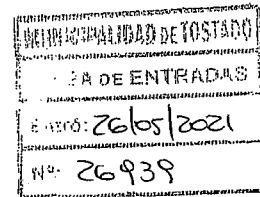 MUNICIPALIDAD DE TOSTADO
A DE ENTRADAS
26/05/2021
Nº 26939